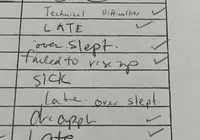 Technical Difficulties
LATE
over slept.
failed to rise up
SICK
late over slept.
dr appt
Late